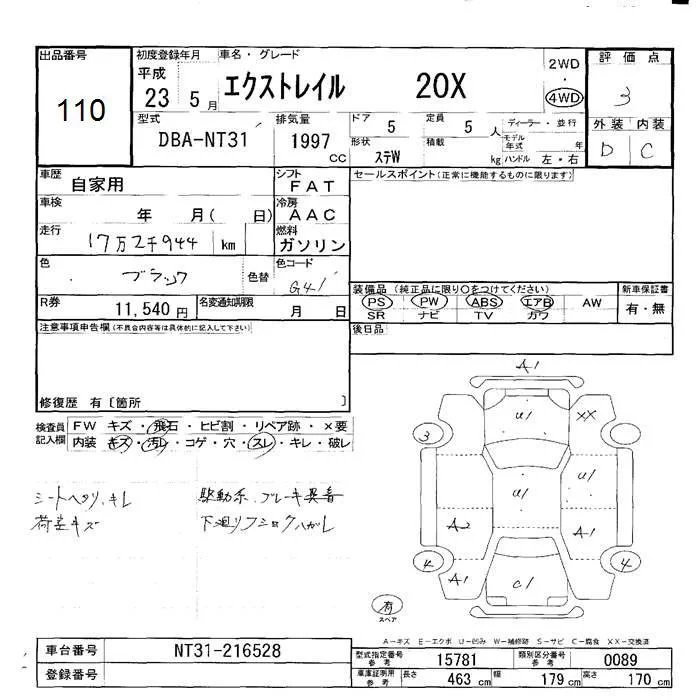 出品番号
110
初度登録年月
平成
23 5月
車名・グレード
エクストレイル 20X
2WD
・
4WD
評価点
3
外装 内装
D C
型式
DBA-NT31
排気量
1997
cc
ドア
5
定員
5 人
形状
ステW
積載
kg
ディーラー・並行
モデル年式 年
ハンドル 左・右
車歴
自家用
シフト
FAT
車検
年 月( 日)
冷房
AAC
走行
17万2千944 km
燃料
ガソリン
色
ブラック
色替
色コード
G41
R券
11,540円
名変通知期限
月 日
セールスポイント(正常に機能するものに限ります)
装備品 (純正品に限り○をつけてください)
PS PW ABS エアB AW
SR ナビ TV カワ
新車保証書
有・無
後日品
注意事項申告欄(不具合内容等は具体的に記入して下さい)
修復歴 有〔箇所 〕
検査員記入欄
FW キズ・飛石・ヒビ割・リペア跡・×要
内装 キズ・汚レ・コゲ・穴・スレ・キレ・破レ
シートヘタリ、キレ
荷室キズ
駆動系、ブレーキ異音
下廻リフショクハガレ
A1
U1
XX
3
U1
U1
A2
A1
4
4
A1
C1
有
スペア
A-キズ E-エクボ U-凹み W-補修跡 S-サビ C-腐食 XX-交換済
車台番号
NT31-216528
登録番号
型式指定番号
参考
15781
類別区分番号
参考
0089
車庫証明用
参考
長さ 463 cm 幅 179 cm 高さ 170 cm